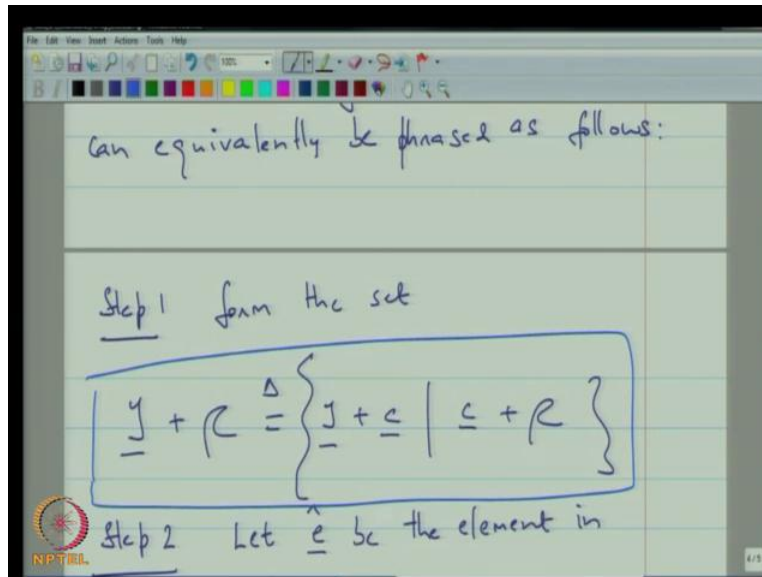 File Edit View Insert Actions Tools Help
100%
can equivalently be phrased as follows:
Step 1 form the set
y + C ≜ { y + c | c + C }
Step 2 Let ê be the element in
NPTEL
4/5